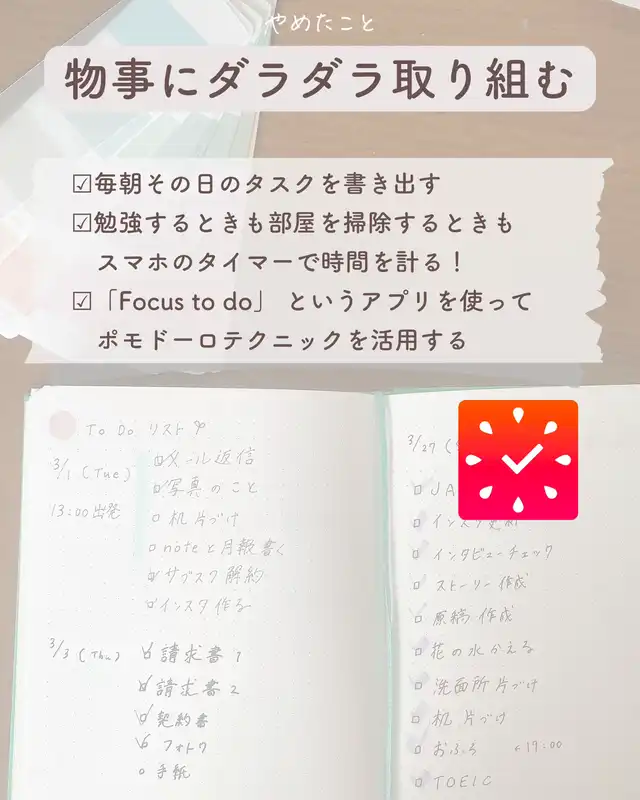 やめたこと
物事にダラダラ取り組む
☑毎朝その日のタスクを書き出す
☑勉強するときも部屋を掃除するときも
スマホのタイマーで時間を計る！
☑「Focus to do」 というアプリを使って
ポモドーロテクニックを活用する
To Do リスト
3/1 (Tue)
13:00 出発
メール返信
写真のこと
机片づけ
noteと月報書く
サブスク解約
インスタ作る
3/3 (Thu)
請求書1
請求書2
契約書
フォトワ
手紙
3/27 (
JA
インスタ更新
インタビューチェック
ストーリー作成
原稿作成
花の水かえる
洗面所片づけ
机片づけ
おふろ
19:00
TOEIC